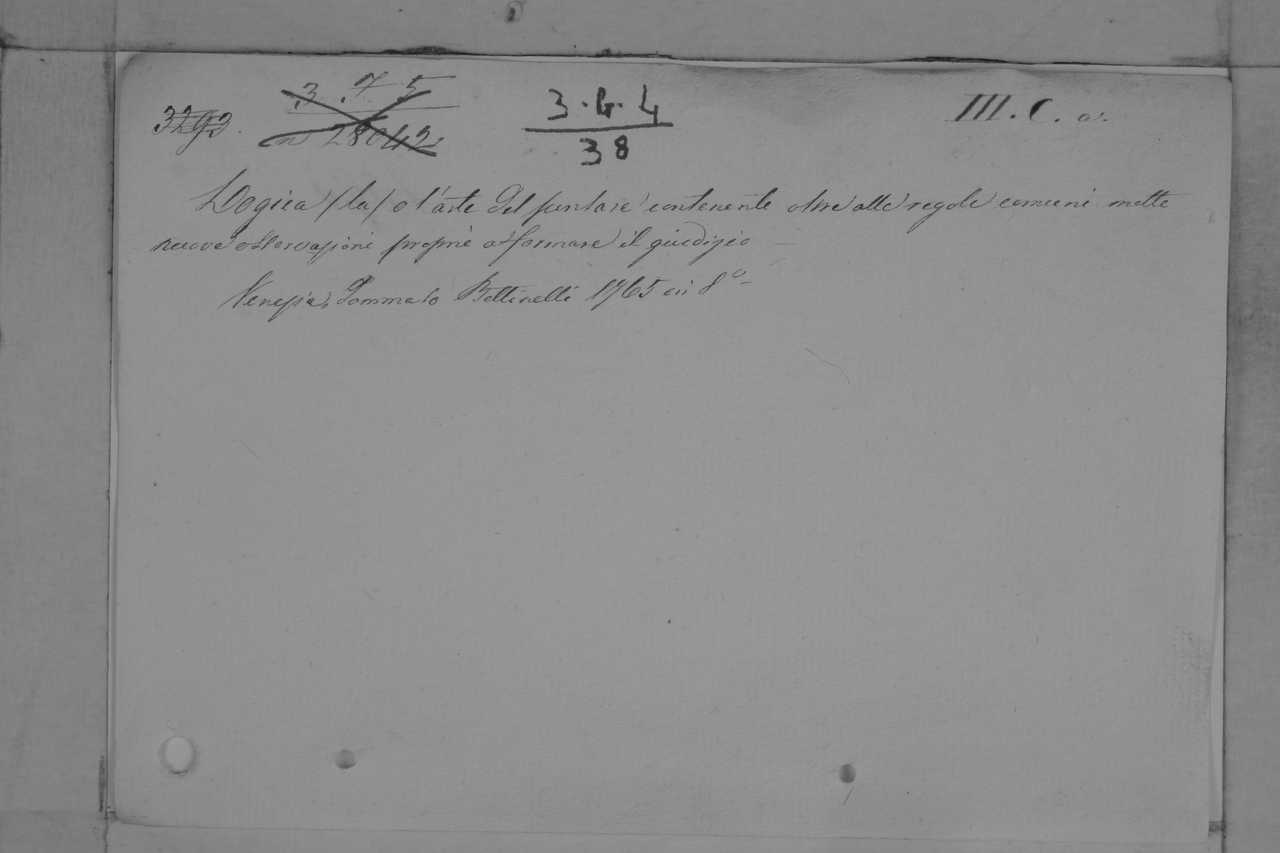 3293. 3.7.5 3.G.4 III.C.a.
28042 38
Logica (la) o l'arte del pensare contenente oltre alle regole comuni molte
nuove osservazioni proprie a formare il giudizio
Venezia, Tommaso Bettinelli 1765 in 8º